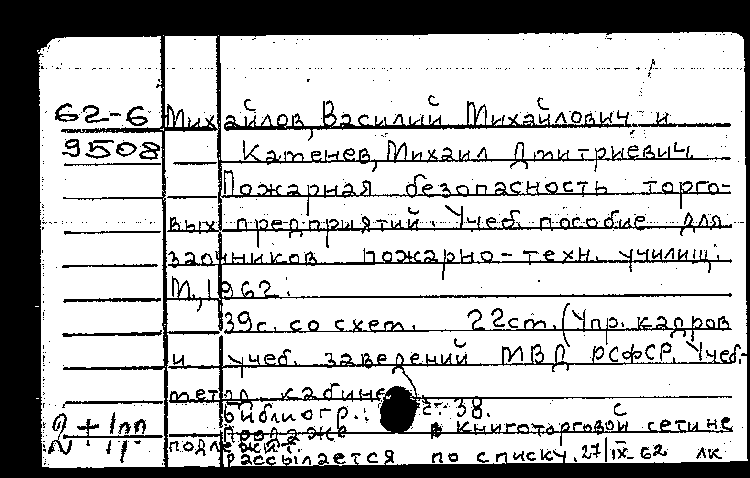 62-6 Михайлов, Василий Михайлович и
9508 Катенев, Михаил Дмитриевич.
Пожарная безопасность торго-
вых предприятий. Учеб. пособие для
заочников пожарно-техн. училищ.
М., 1962.
39с. со схем. 22см. (Упр. кадров
и учеб. заведений МВД РСФСР. Учеб.-
метод. кабине
Библиогр.: с. 38.
Продаже в книготорговой сети не
подлежит.
Рассылается по списку. 27/IX 62 лк